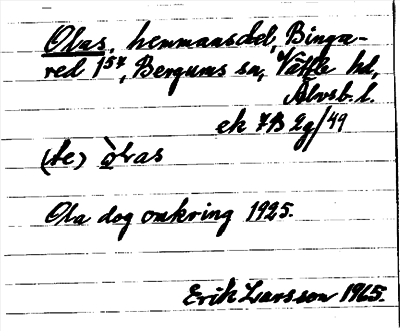 Olas, hemmansdel, Binga-
red 1⁵⁷, Bergums sn, Vättle hd,
Älvsb. l.
ek 7B 2g/49
(te) òlas
Ola dog omkring 1925.
Erik Larsson 1965.